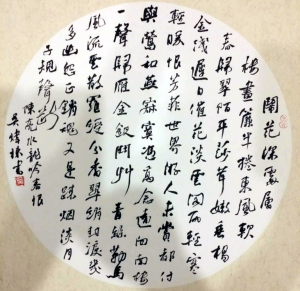 鬧花深處層
樓畫簾半捲東風軟
春歸翠陌平莎茸嫩垂楊
金淺遲日催花淡雲閣雨輕寒
輕暖恨芳菲世界游人未賞都付
與鶯和燕寂寞憑高念遠向南樓
一聲歸雁金釵鬥草青絲勒馬
風流雲散羅綬分香翠綃封淚幾
多幽怨正銷魂又是疏烟淡月
子規聲斷
陳亮水龍吟春恨
書